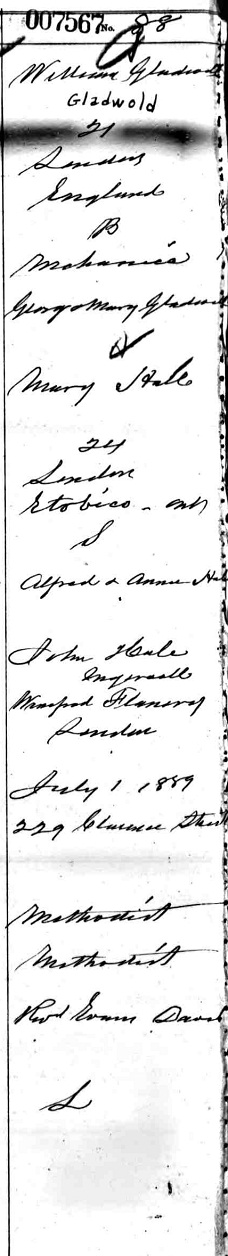 007567 No. 88
William Gladwold
Gladwold
21
London
England
B
Mechanic
George & Mary Gladwold
Mary Hale
24
London
Etobico - ont
S
Alfred & Annie Hale
John Hale
Ingersoll
Winnifred Flanery
London
July 1 1889
229 Clarence Street
Methodist
Methodist
Revd Evans Davis
L